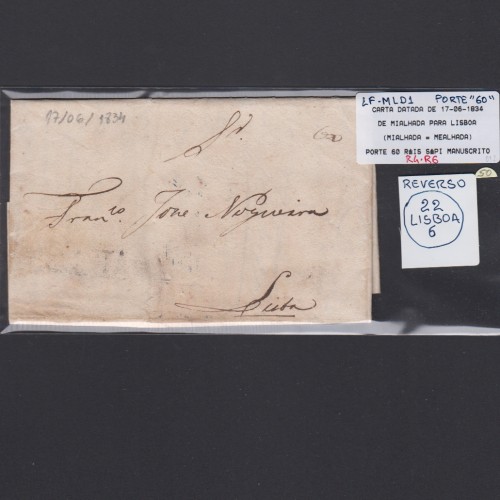 17/06/1834
Sr.
60
Franco. Jose Nogueira
Lisba
LF-MLD1 PORTE "60"
CARTA DATADA DE 17-06-1834
DE MIALHADA PARA LISBOA
(MIALHADA = MEALHADA)
PORTE 60 RÉIS SÉPI MANUSCRITO
R4-R6
50
REVERSO
22
LISBOA
6